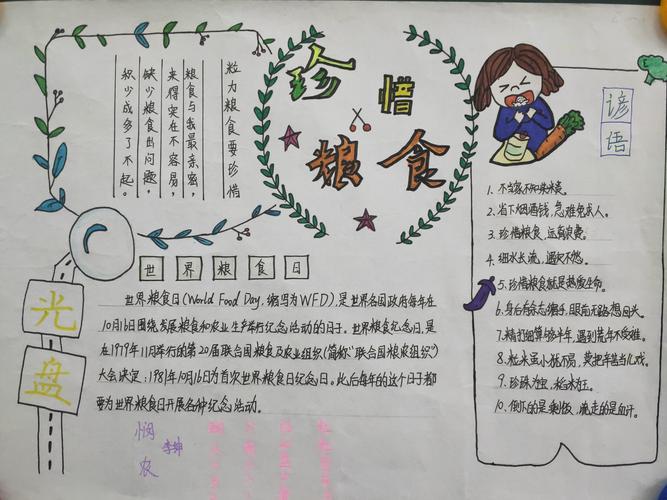 珍惜
粮食
粒力粮食要珍惜
粮食与我最亲密,
来得实在不容易,
缺少粮食出问题,
积少成多了不起。
光
盘
世界粮食日
世界粮食日(World Food Day,缩写为WFD),是世界各国政府每年在
10月16日围绕发展粮食和农业生产举行纪念活动的日子。世界粮食纪念日,是
在1979年11月举行的第20届联合国粮食及农业组织(简称"联合国粮农组织")
大会决定:1981年10月16日为首次世界粮食日纪念日。此后每年的这个日子都
要为世界粮食日开展各种纪念活动。
悯农
李绅
谚语
1、不当家不知柴米贵。
2、省下烟酒钱,急难免求人。
3、珍惜粮食,远离浪费。
4、细水长流,遇灾不愁。
5、珍惜粮食就是热爱生命。
6、身后有余忘缩手,眼前无路想回头。
7、精打细算够半年,遇到荒年不受难。
8、粒米虽小犹不易,莫把辛苦当儿戏。
9、珍珠为宝,稻米为王。
10、倒下的是剩饭,流走的是血汗。